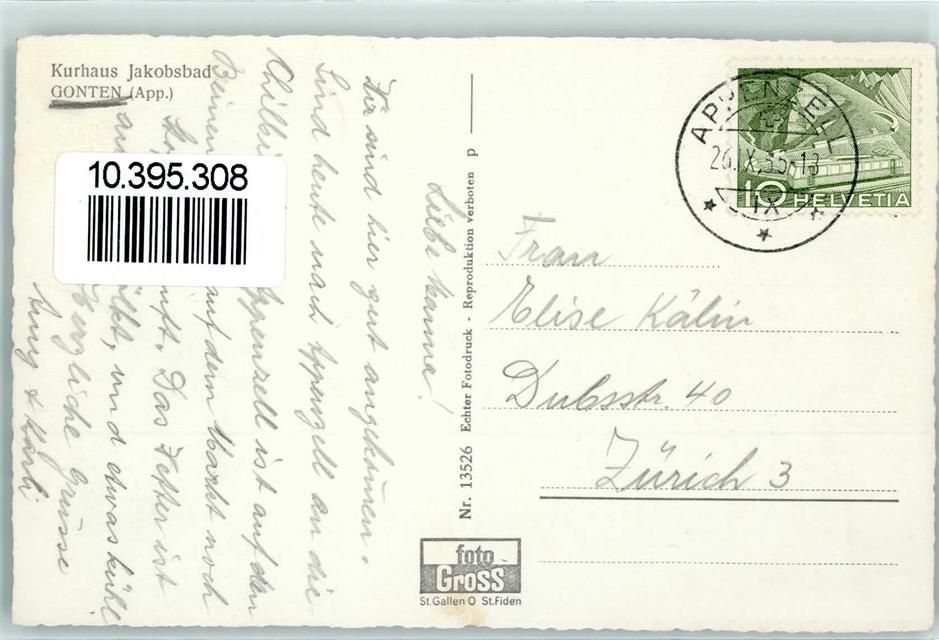 Kurhaus Jakobsbad
GONTEN (App.)
10.395.308
Liebe Mamma!
Wir sind hier gut angekommen.
Sind heute nach Appenzell an die
Chilbi Appenzell ist auf den
Beinen auf dem Markt noch
Das Wetter ist
und etwas kühl
Herzliche Grüsse
Anny & Karli
Nr. 13526 Echter Fotodruck - Reproduktion verboten p
APPENZELL
26.IX.55-18
IX
10 HELVETIA
Frau
Elise Kälin
Dubsstr. 40
Zürich 3
foto
Gross
St.Gallen O St.Fiden